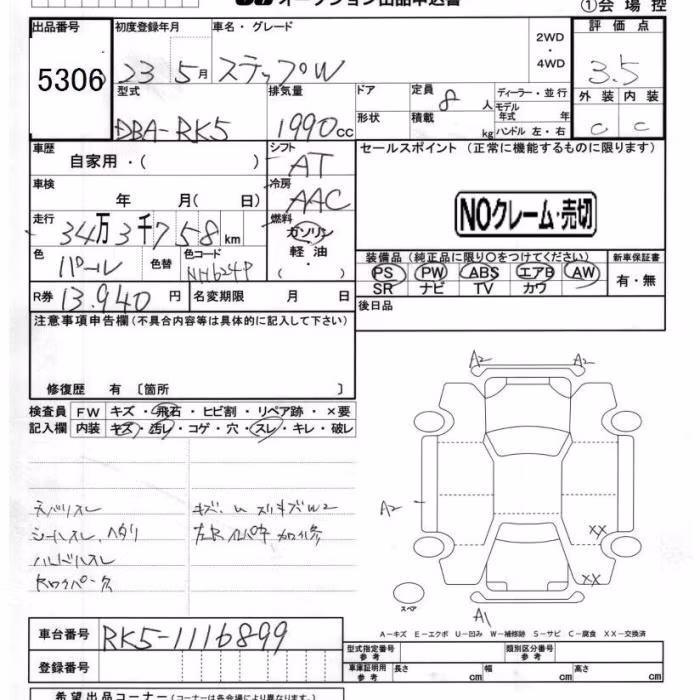 オークション出品申込書
①会場控
出品番号
5306
初度登録年月
23 5月
車名・グレード
ステップW
2WD
・
4WD
評価点
3.5
外装 内装
C C
型式
DBA-RK5
排気量
1990cc
ドア
形状
定員
8 人
積載
kg
ディーラー・並行
モデル
年式 年
ハンドル 左・右
車歴
自家用・( )
シフト
AT
セールスポイント (正常に機能するものに限ります)
NOクレーム・売切
車検
年 月( 日)
冷房
AAC
走行
34万3千758km
燃料
ガソリン
軽油
色
パール
色替
色コード
NH624P
装備品 (純正品に限り○をつけてください)
PS PW ABS エアB AW
SR ナビ TV カワ
新車保証書
有・無
R券 13.940 円
名変期限 月 日
後日品
注意事項申告欄 (不具合内容等は具体的に記入して下さい)
修復歴 有 〔箇所 〕
検査員 FW キズ・飛石・ヒビ割・リペア跡・×要
記入欄 内装 キズ・汚レ・コゲ・穴・スレ・キレ・破レ
シートスレ、ヘタリ
ハンドルスレ
A2 A2
A2
XX
XX
スペア
A1
A-キズ E-エクボ U-凹み W-補修跡 S-サビ C-腐食 XX-交換済
車台番号
RK5-1116899
登録番号
型式指定番号
参考
類別区分番号
参考
車庫証明用
参考
長さ cm
幅 cm
高さ cm
希望出品コーナー